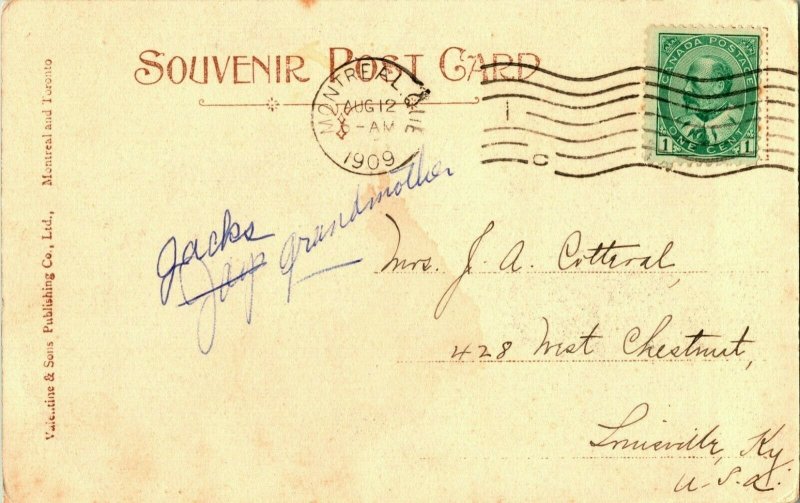 SOUVENIR POST CARD
MONTREAL, QUE
AUG 12
-AM
1909
CANADA POSTAGE
1 ONE CENT 1
Jacks
Jay's grandmother
Mrs. J. A. Cotteral,
428 West Chestnut,
Louisville, Ky
U.S.A.
Valentine & Sons Publishing Co., Ltd., Montreal and Toronto